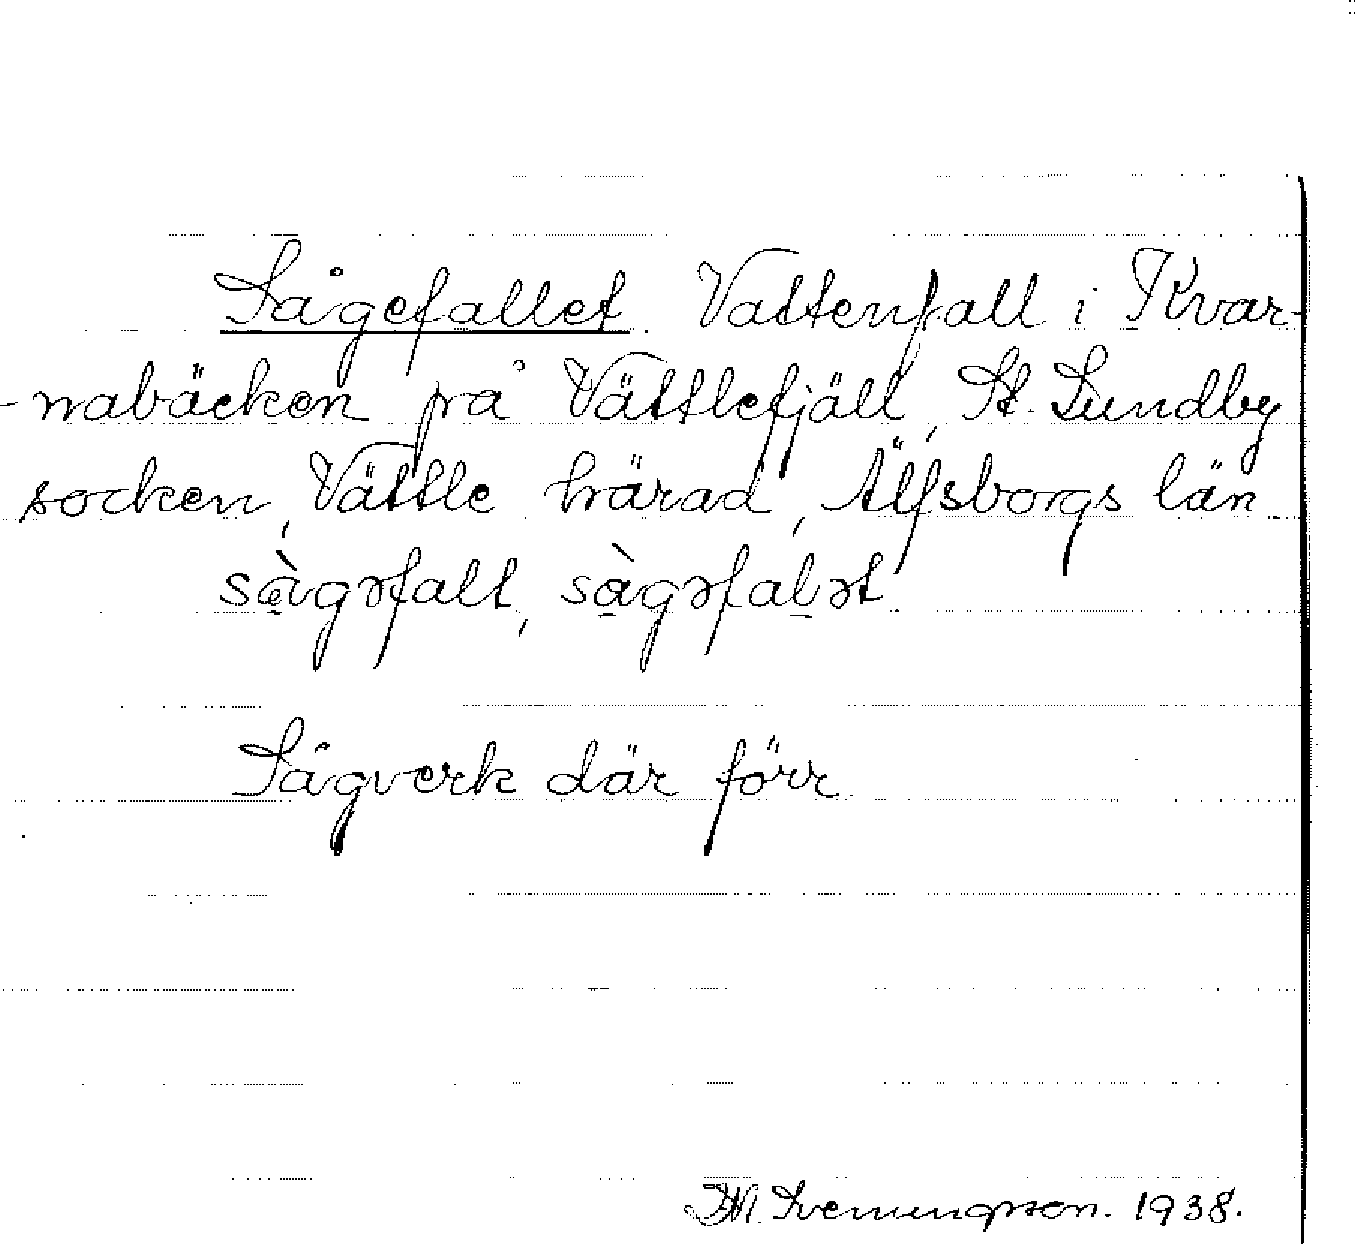 Sågefallet. Vattenfall i Kvar-
-nabäcken på Vättlefjäll, St. Lundby
socken, Vättle härad, Älfsborgs län
sàgəfalt, sàgəfalət
Sågverk där förr.
Svenungsson. 1938.